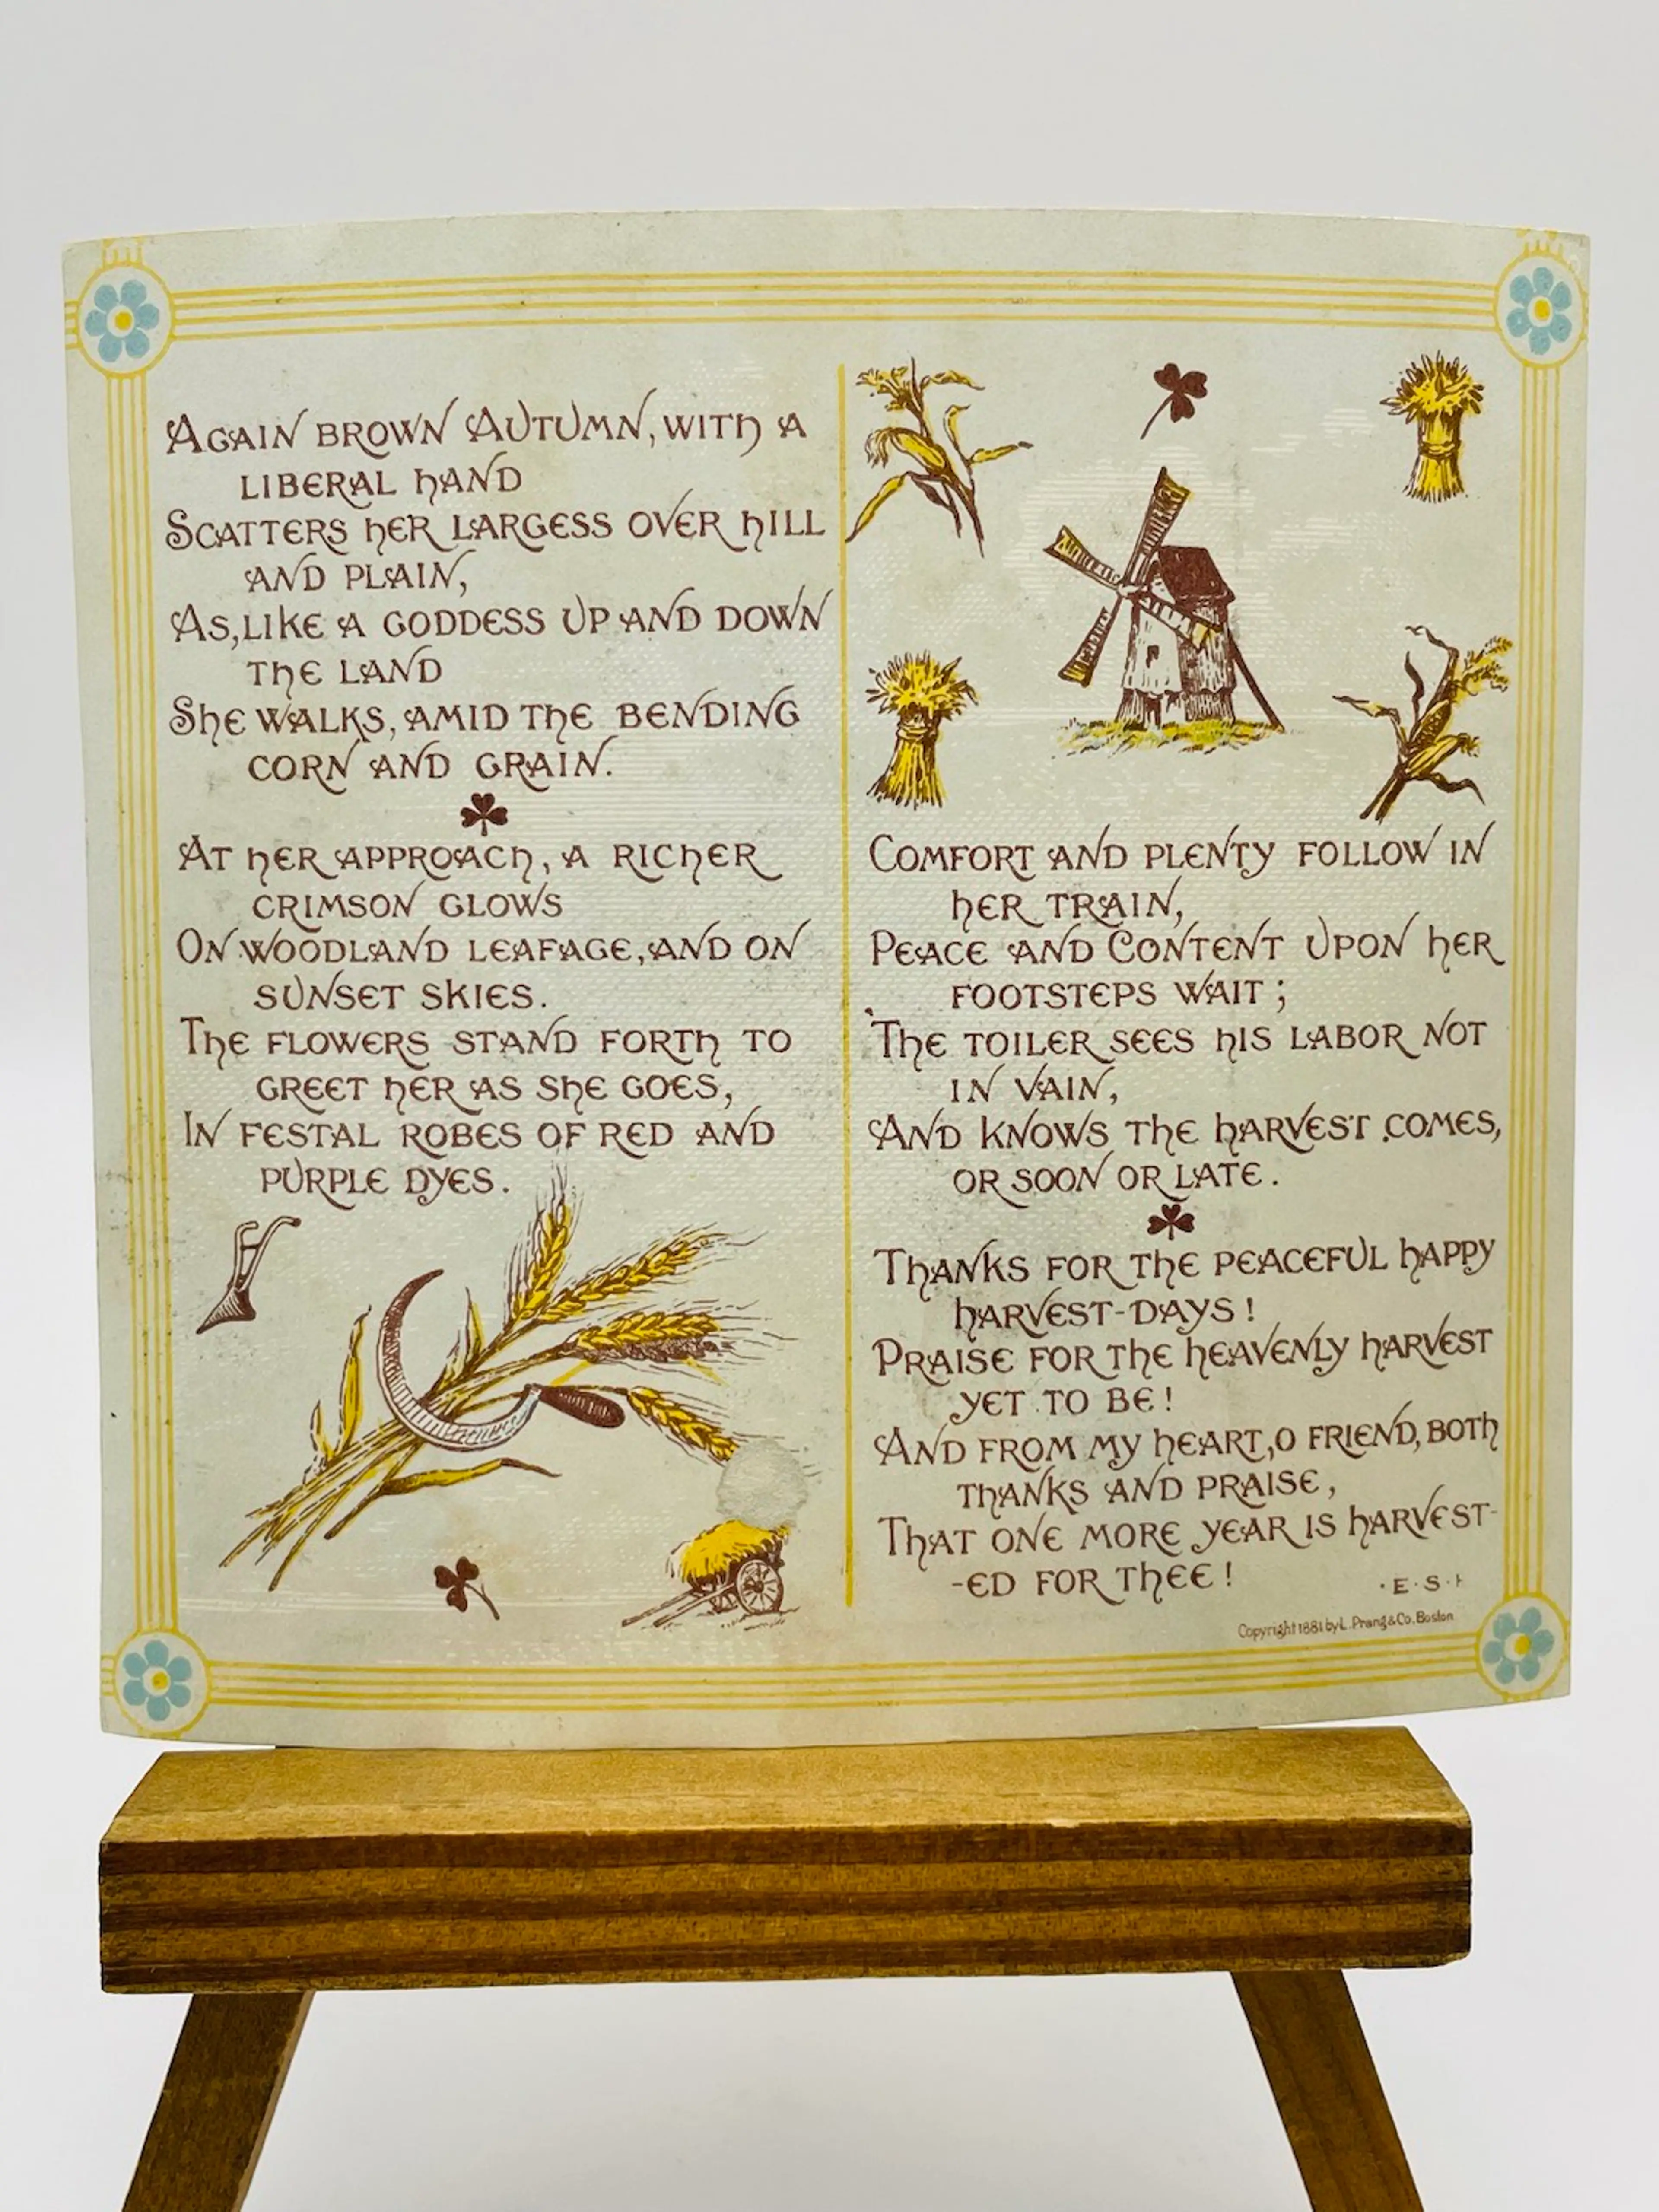 AGAIN BROWN AUTUMN, WITH A
LIBERAL HAND
SCATTERS HER LARGESS OVER HILL
AND PLAIN,
AS, LIKE A GODDESS UP AND DOWN
THE LAND
SHE WALKS, AMID THE BENDING
CORN AND GRAIN.
AT HER APPROACH, A RICHER
CRIMSON GLOWS
ON WOODLAND LEAFAGE, AND ON
SUNSET SKIES.
THE FLOWERS STAND FORTH TO
GREET HER AS SHE GOES,
IN FESTAL ROBES OF RED AND
PURPLE DYES.
COMFORT AND PLENTY FOLLOW IN
HER TRAIN,
PEACE AND CONTENT UPON HER
FOOTSTEPS WAIT;
THE TOILER SEES HIS LABOR NOT
IN VAIN,
AND KNOWS THE HARVEST COMES,
OR SOON OR LATE.
THANKS FOR THE PEACEFUL HAPPY
HARVEST-DAYS!
PRAISE FOR THE HEAVENLY HARVEST
YET TO BE!
AND FROM MY HEART, O FRIEND, BOTH
THANKS AND PRAISE,
THAT ONE MORE YEAR IS HARVEST-
-ED FOR THEE!
·E·S·
Copyright 1881 by L. Prang & Co. Boston